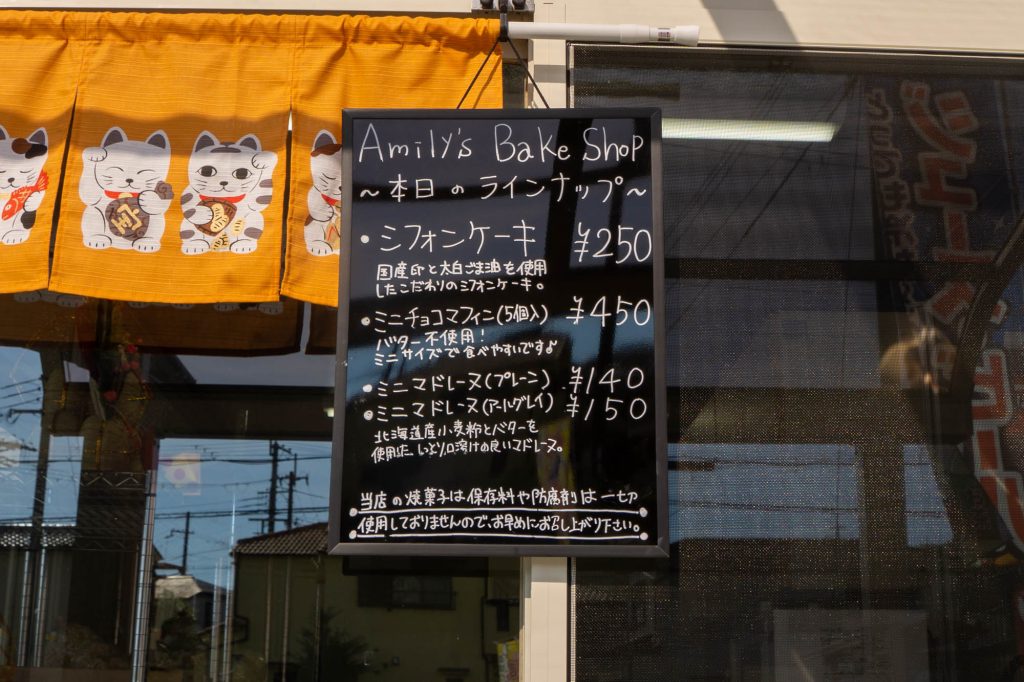 Amily's Bake Shop
～本日のラインナップ～
•シフォンケーキ ¥250
国産卵と太白ごま油を使用
したこだわりのシフォンケーキ。
•ミニチョコマフィン(5個入) ¥450
バター不使用!
ミニサイズで食べやすいです♪
•ミニマドレーヌ(プレーン) ¥140
•ミニマドレーヌ(アールグレイ) ¥150
北海道産小麦粉とバターを
使用した、しっとり口溶けの良いマドレーヌ。
当店の焼菓子は保存料や防腐剤は一切
使用しておりませんので、お早めにお召し上がり下さい。